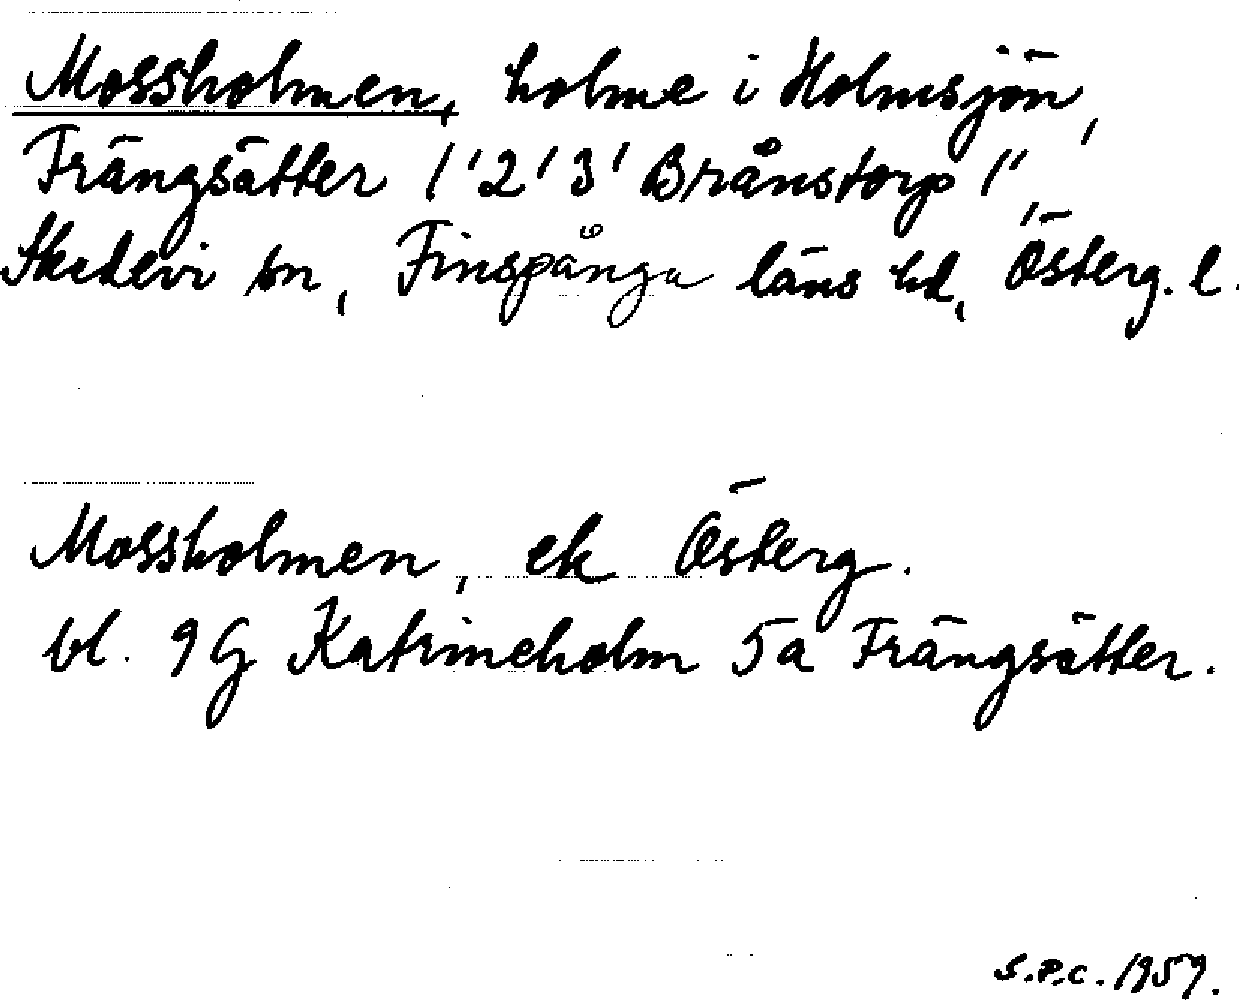 Mossholmen, holme i Holmsjön,
Frängsätter 1'2'3' Brånstorp 1",
Skedevi sn, Finspånga läns hd, Österg. l.
Mossholmen, ek Österg.
bl. 9G Katrineholm 5a Frängsätter.
S.P.C. 1959.